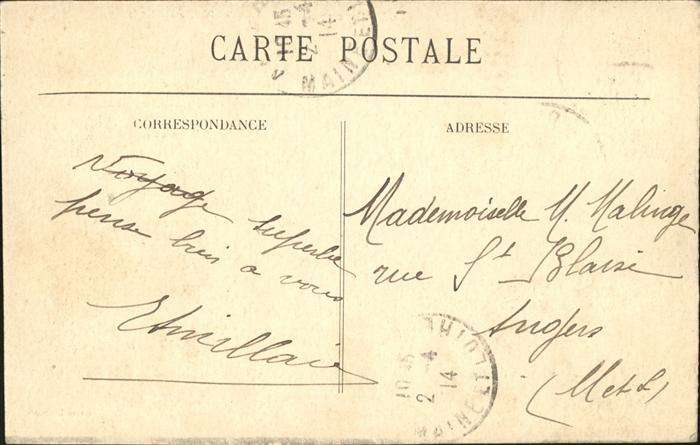 CARTE POSTALE
CORRESPONDANCE
Voyage superbe
pense bien a vous
ADRESSE
Mademoiselle M. Malinge
rue St Blaise
Angers
(M et L)
10 45
2 -4
14
MAINE
10 45
2 -4
14
MAINE ET LOIRE